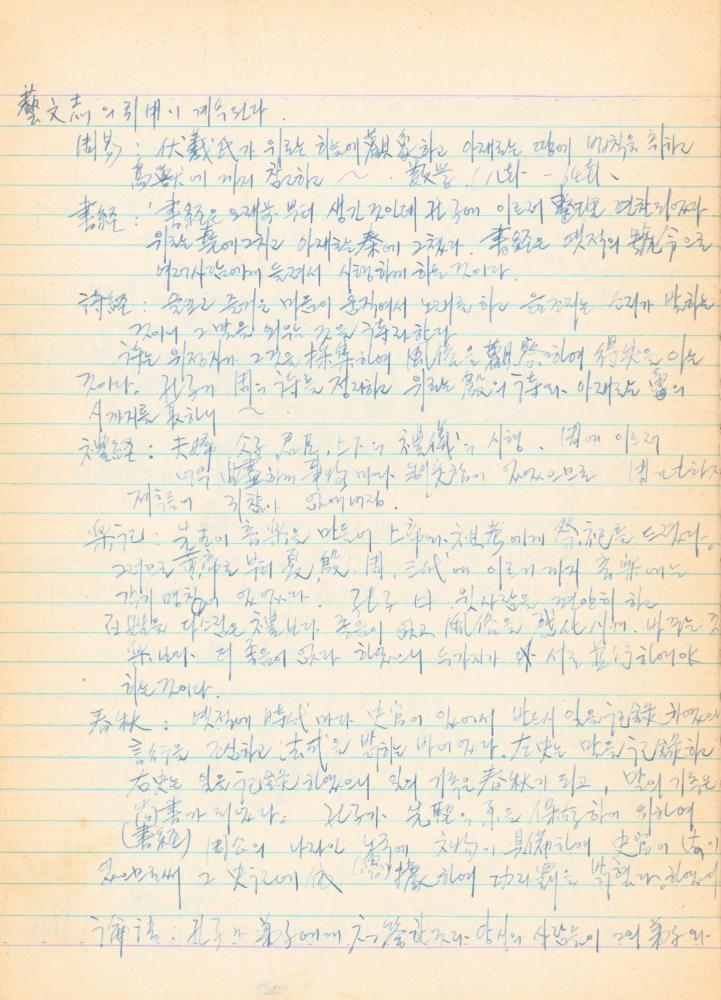 藝文志의 引用이 계속된다.
周易: 伏羲氏가 위로는 하늘에 觀象하고 아래로는 땅에 법칙을 취하고
鳥獸에 까지 참고하고 ~ . 數学 (八괘 - 64괘、
書経: 書経은 오래 부터 생긴 것인데 孔子에 이르러 整理 편찬되었다.
위로는 堯에 그치고 아래로는 秦에 그쳤다. 書経은 옛적의 號令으로
여러사람에게 들려서 시행하게 하는 것이다.
詩経: 슬프고 즐거운 마음이 움직여서 노래를 하고 읊조리는 소리가 발하는
것이니 그 말을 외우는 것을 詩라 한다
詩는 위정자가 그것을 採集하여 風俗을 觀察하여 得失을 아는
것이다. 孔子가 周의 詩를 정리하고 위로는 殷의 詩와 아래로는 魯의
詩까지를 取하니 ~ .
禮経: 夫婦 父子, 君臣, 上下의 禮儀의 시행. 周에 이르러
너무 하게 事物 마다 있었으므로 周가
제후들이 없애버림.
樂記: 先王이 音樂을 만들어 上帝에 祖考에게 祭祀를 드렸다.
그러므로 黃帝로 부터 夏, 殷, 周, 三代에 이르기 까지 音樂에는
각기 명칭이 있었다. 孔子曰 윗사람을 편안히 하고
百姓을 다스림은 禮보다 좋음이 없고 風俗을 感化시켜 바꾸는 것
樂보다 더 좋음이 없다 하였으니 두가지가 서로 並行하여야
하는 것이다.
春秋: 옛적에 時代마다 史官이 있어서 반드시 일을 記錄하였으니
言行을 조심하고 法式을 밝히는 바이었다. 左史는 말을 記錄하고
右史는 일을 記錄하였으니 일의 기록은 春秋가 되고, 말의 기록은
尙書가 되었다. 孔子가 先聖의 을 保存하기 위하여
(書経) 周公의 나라인 노국에 禮物이 具備하여 史官이 法이
있으므로써 그 史記에 (魯) 據하여 功과 罪를 밝혔다. 하였으니
論語: 孔子가 弟子에게 答한 것과 당시의 사람들이 그의 弟子와